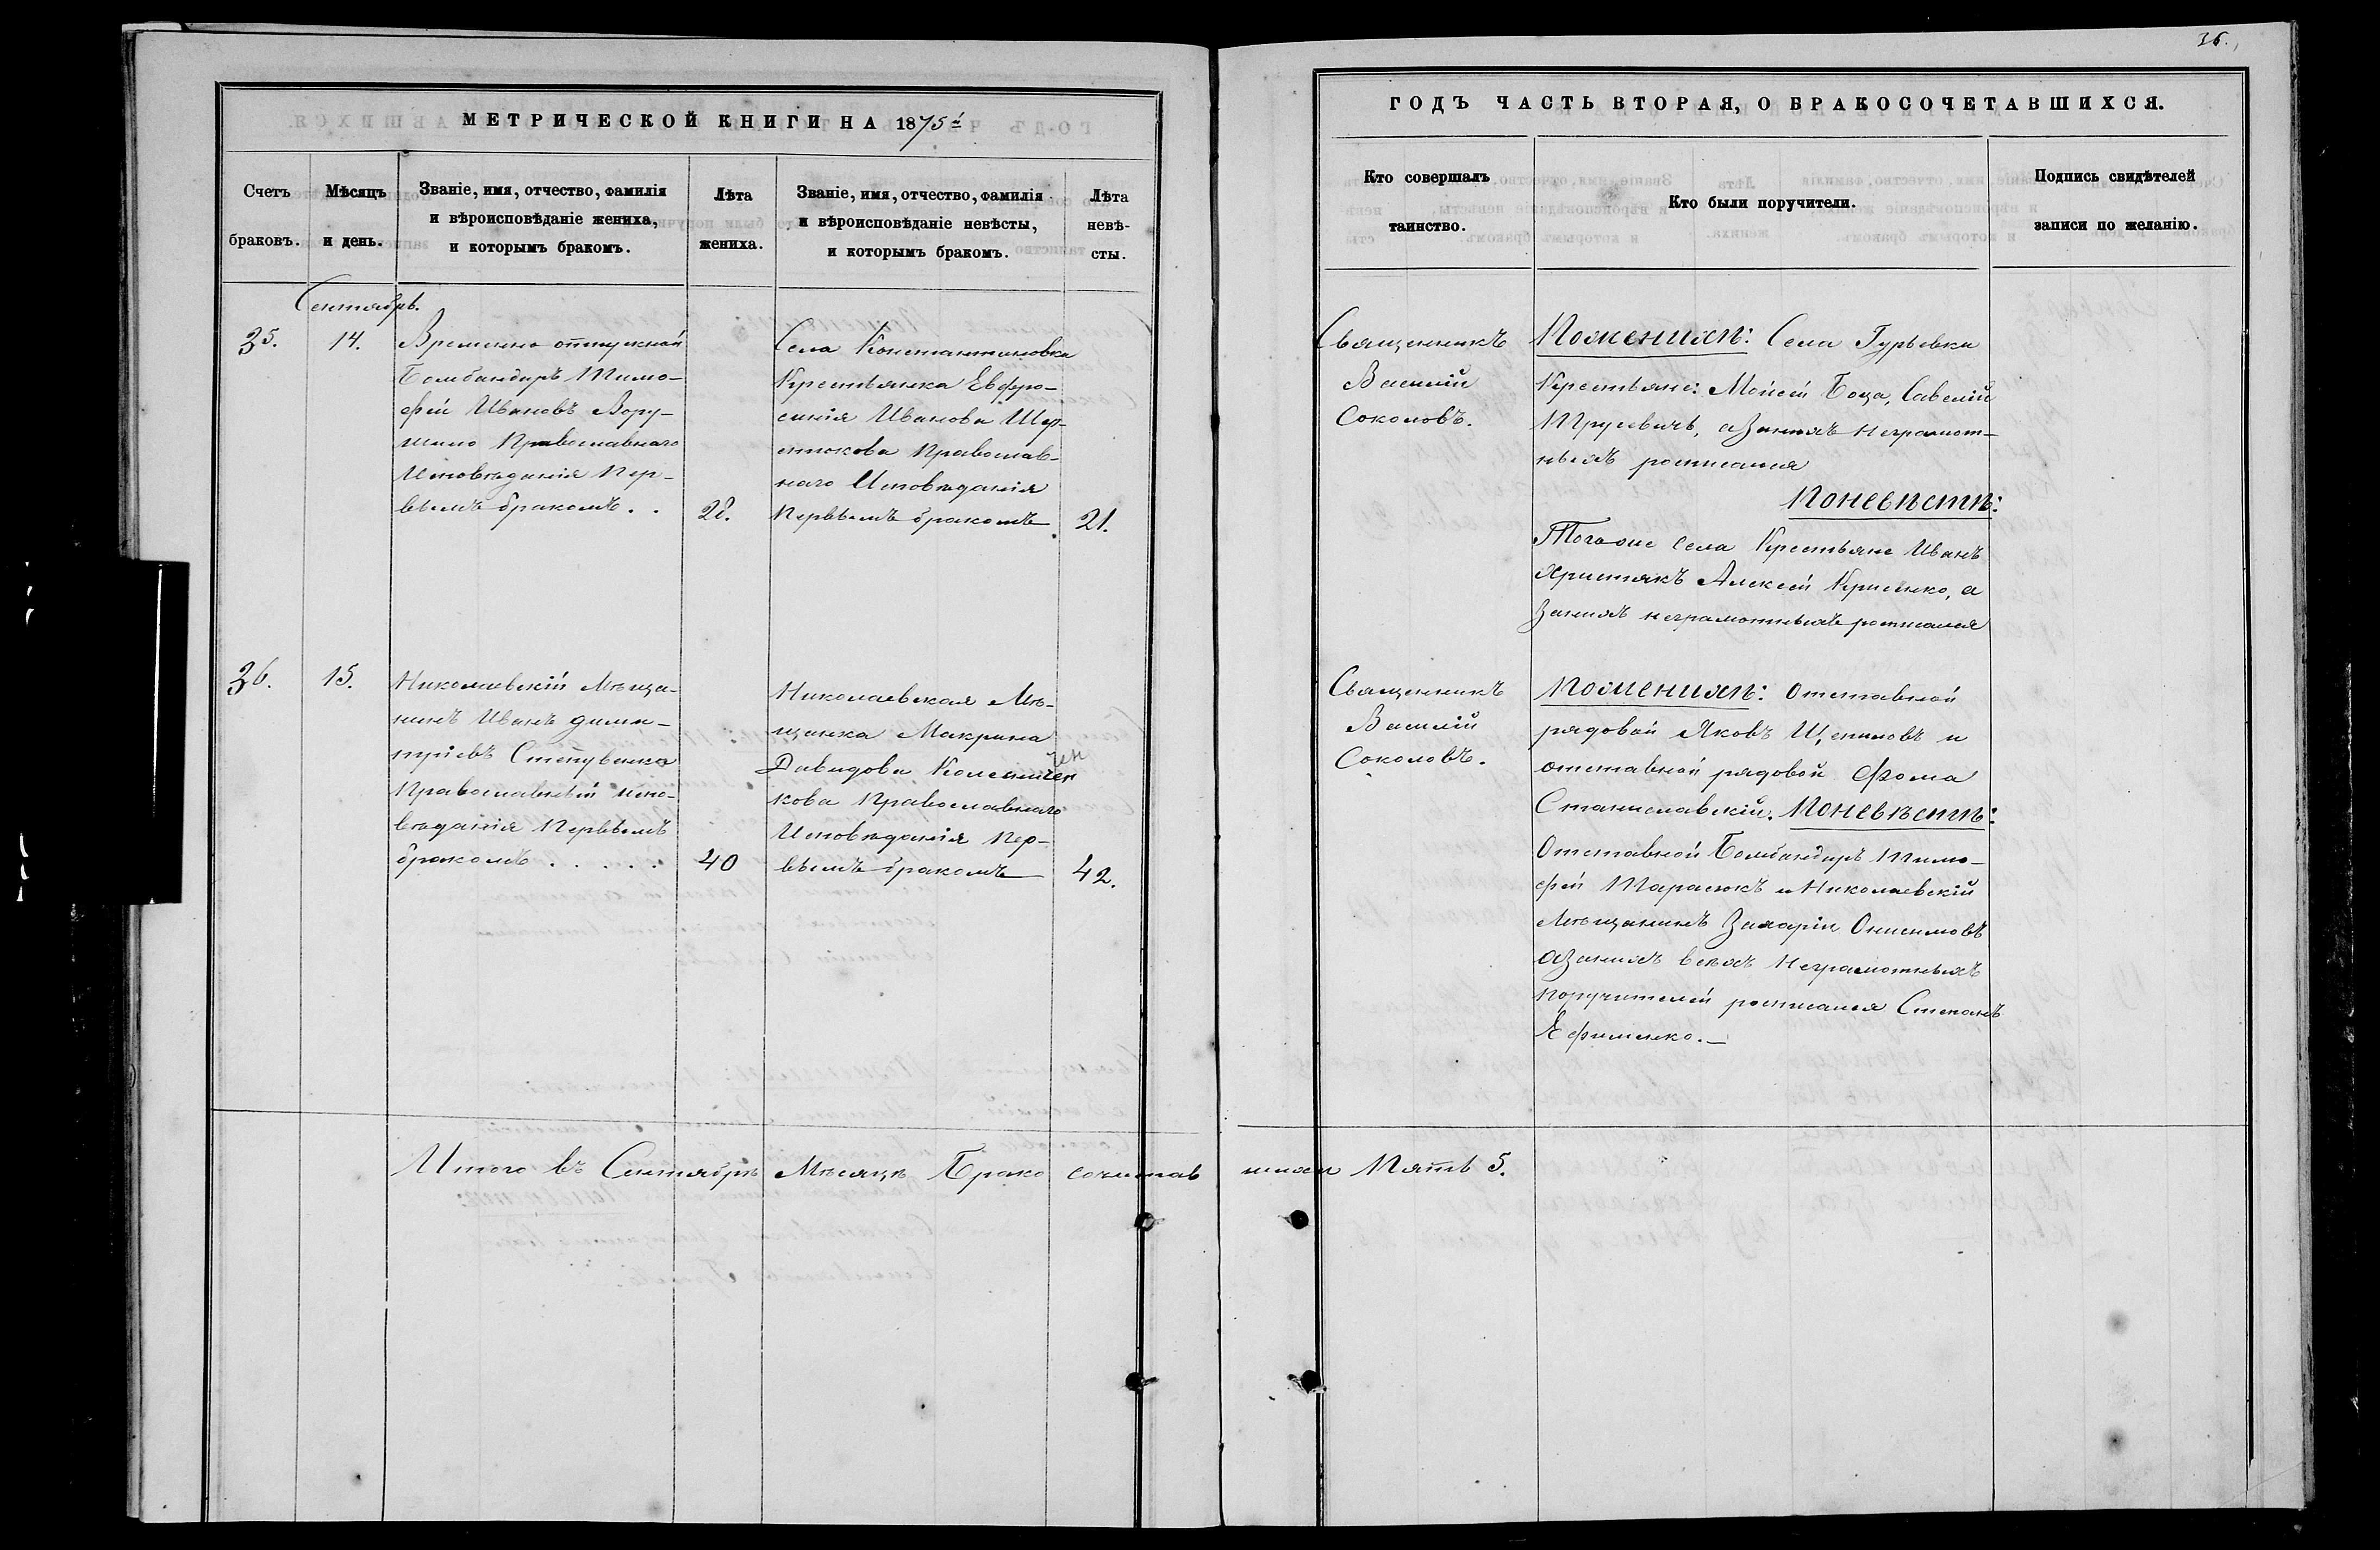 36.
МЕТРИЧЕСКОЙ КНИГИ НА 1875й
ГОДЪ ЧАСТЬ ВТОРАЯ, О БРАКОСОЧЕТАВШИХСЯ.
Счетъ
браковъ.
Мѣсяцъ
и день.
Званіе, имя, отчество, фамилія
и вѣроисповѣданіе жениха,
и которымъ бракомъ.
Лѣта
жениха.
Званіе, имя, отчество, фамилія
и вѣроисповѣданіе невѣсты,
и которымъ бракомъ.
Лѣта
невѣ-
сты.
Кто совершалъ
таинство.
Кто были поручители.
Подпись свидѣтелей
записи по желанію.
Сентябрь.
35.
14.
Временно отпускной
Бомбандиръ Тимо-
фей Ивановъ Вору-
шило Православнаго
Исповѣданія Пер-
вымъ бракомъ . .
28.
Села Константиновка
Крестьянка Евфро-
синія Иванова Шер-
стюкова Православ-
наго Исповѣданія
Первымъ бракомъ
21.
Священникъ
Василій
Соколовъ.
Поженихѣ: Села Гурьевки
Крестьяне: Мойсей Боца, Савелій
Трусевичь, а Занихъ Неграмот-
ныхъ росписался
Поневѣстѣ:
Тогоже села Крестьяне Иванъ
Христякъ Алексѣй Крисенко, а
Занихъ неграмотныхъ росписался
36.
15.
Николаевскій Мѣща-
нинъ Иванъ дими-
тріевъ Степувенко
Православный испо-
вѣданія Первымъ
бракомъ . . . . .
40
Николаевская Мѣ-
щанка Макрина
Давидова Колесничен
кова Православнаго
Исповѣданія Пер-
вымъ бракомъ
42.
Священникъ
Василій
Соколовъ.
Поженихѣ: Отставной
рядовой Яковъ Щепиловъ и
отставной рядовой Фома
Станиславскій. Поневѣстѣ:
Отставной Бомбандиръ Тимо-
фей Тарасюкъ и Николаевскій
Мѣщанинъ Захарій Онисимовъ
а Занихъ всехъ Неграмотныхъ
Поручителей росписался Степанъ
Ефименко.
Итого въ Сентябрѣ Мѣсяцѣ Брако сочитав шихся Пять 5.